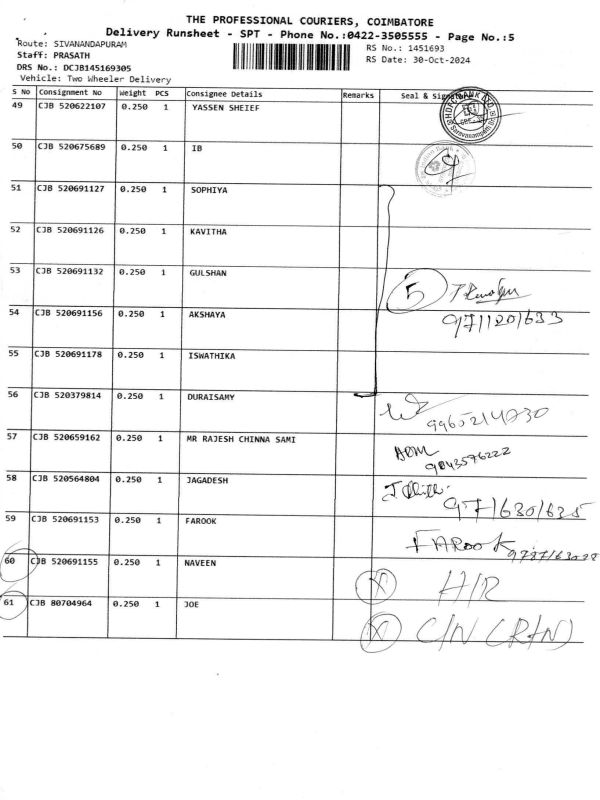 THE PROFESSIONAL COURIERS, COIMBATORE
Delivery Runsheet - SPT - Phone No.:0422-3505555 - Page No.:5
Route: SIVANANDAPURAM
RS No.: 1451693
Staff: PRASATH
RS Date: 30-Oct-2024
DRS No.: DCJB145169305
Vehicle: Two Wheeler Delivery
S No Consignment No Weight PCS Consignee Details Remarks Seal & Signature
49 CJB 520622107 0.250 1 YASSEN SHEIEF
50 CJB 520675689 0.250 1 IB
51 CJB 520691127 0.250 1 SOPHIYA
52 CJB 520691126 0.250 1 KAVITHA
53 CJB 520691132 0.250 1 GULSHAN
5
54 CJB 520691156 0.250 1 AKSHAYA
9711201633
55 CJB 520691178 0.250 1 ISWATHIKA
56 CJB 520379814 0.250 1 DURAISAMY
57 CJB 520659162 0.250 1 MR RAJESH CHINNA SAMI
9843576222
58 CJB 520564804 0.250 1 JAGADESH
59 CJB 520691153 0.250 1 FAROOK
FAROOK
60 CJB 520691155 0.250 1 NAVEEN
X
61 CJB 80704964 0.250 1 JOE
X C/N